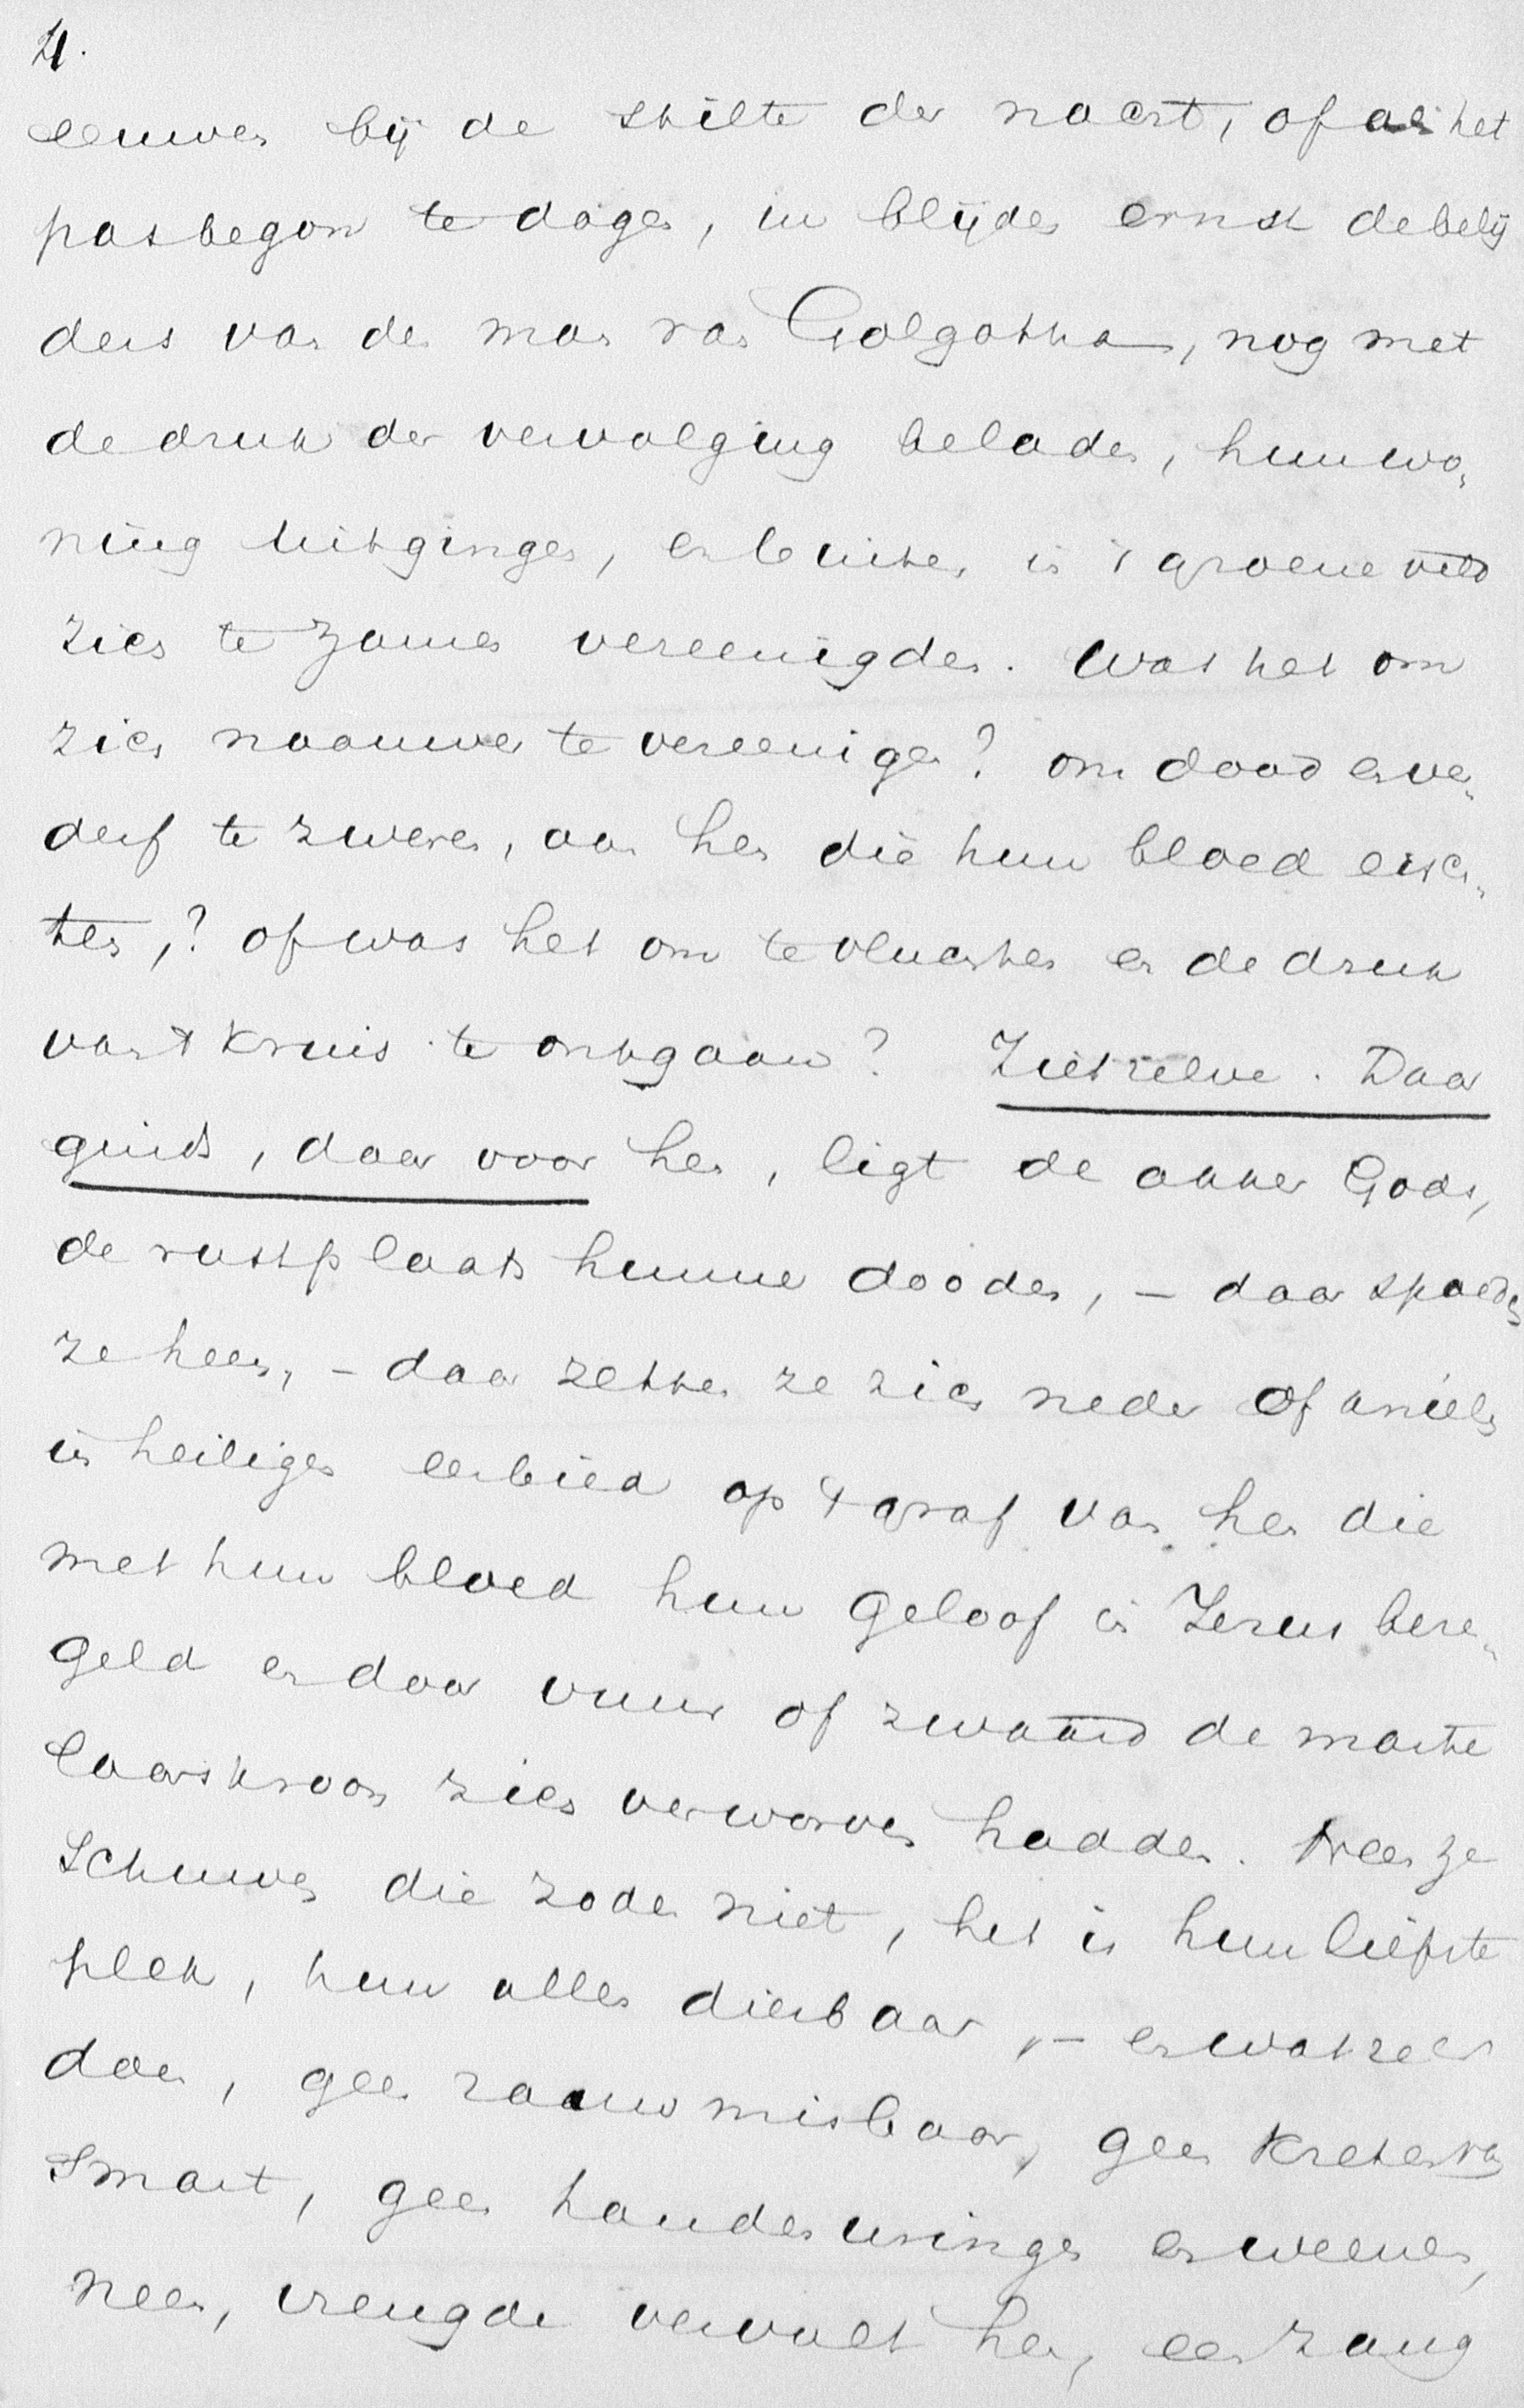 4.
eeuwen bij de stilte der nacht, of als het
pas begon te dagen, in blijden ernst de belij
ders van den man van Golgotha, nog met
de druk der vervolging beladen, hun wo„
ning uitgingen, en buiten in 't groene veld
zich te zamen vereenigden. Was het om
zich naauwer te vereenigen? om dood en ver„
derf te zweren, aan hen die hun bloed eisch„
ten,? of was het om te vluchten en de druk
van 't kruis te ontgaan? Ziet zelve. Daar
ginds, daar voor hen, ligt de akker Gods,
de rustplaats hunner dooden, – daar spoeden
ze heen, – daar zetten ze zich neder of knielen
in heiligen eerbied op 't graf van hen die
met hun bloed hun geloof in Jezus beze„
geld en door vuur of zwaard de marte
laarskroon zich verworven hadden. Neen ze
Schuwen die zoden niet, het is hun liefste
plek, hun allen dierbaar, – en wat ze er
doen, geen raauw misbaar, geen kreten van
Smart, geen handenwringen en weenen,
neen, vreugde vervult hen, een zang